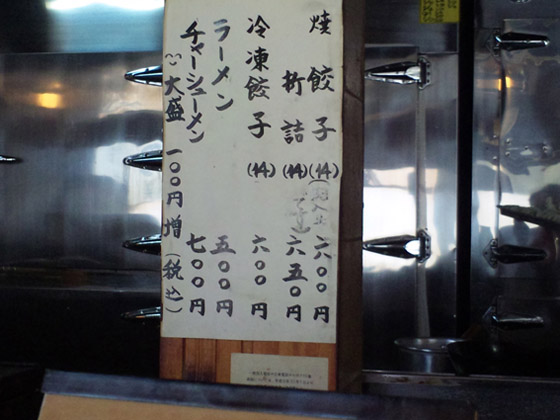 焼餃子(14) 六〇〇円
折詰(14) 六五〇円
冷凍餃子(14) 六〇〇円
ラーメン 五〇〇円
チャーシューメン 七〇〇円
大盛 一〇〇円増(税込)